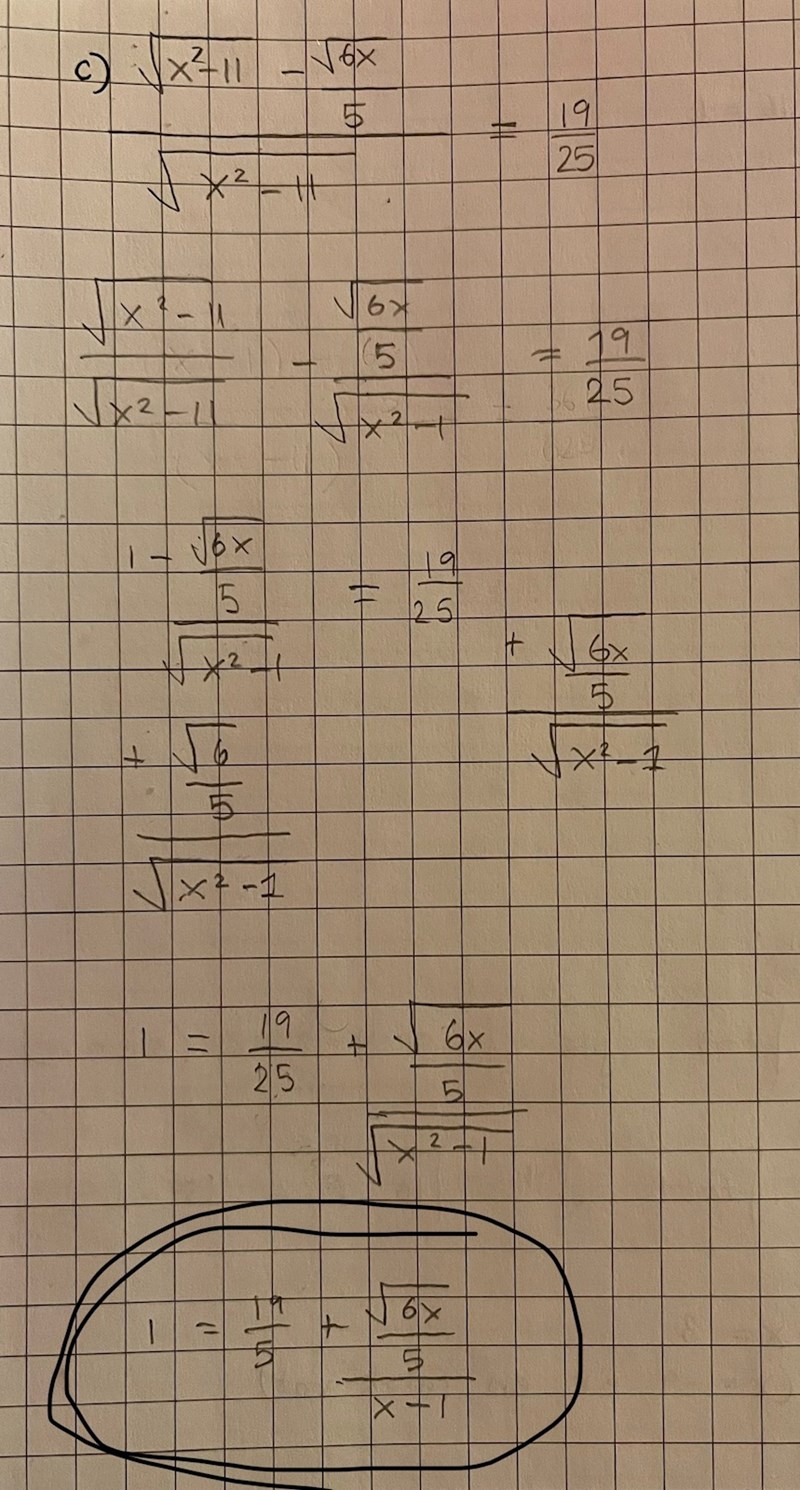 c) (√(x²-11) - √(6x)/5) / √(x²-11) = 19/25
√(x²-11) / √(x²-11) - (√(6x)/5) / √(x²-1) = 19/25
1 - (√(6x)/5) / √(x²-1) = 19/25
+ (√(6x)/5) / √(x²-1)
+ (√6/5) / √(x²-1)
1 = 19/25 + (√(6x)/5) / √(x²-1)
1 = 19/5 + (√(6x)/5) / (x-1)